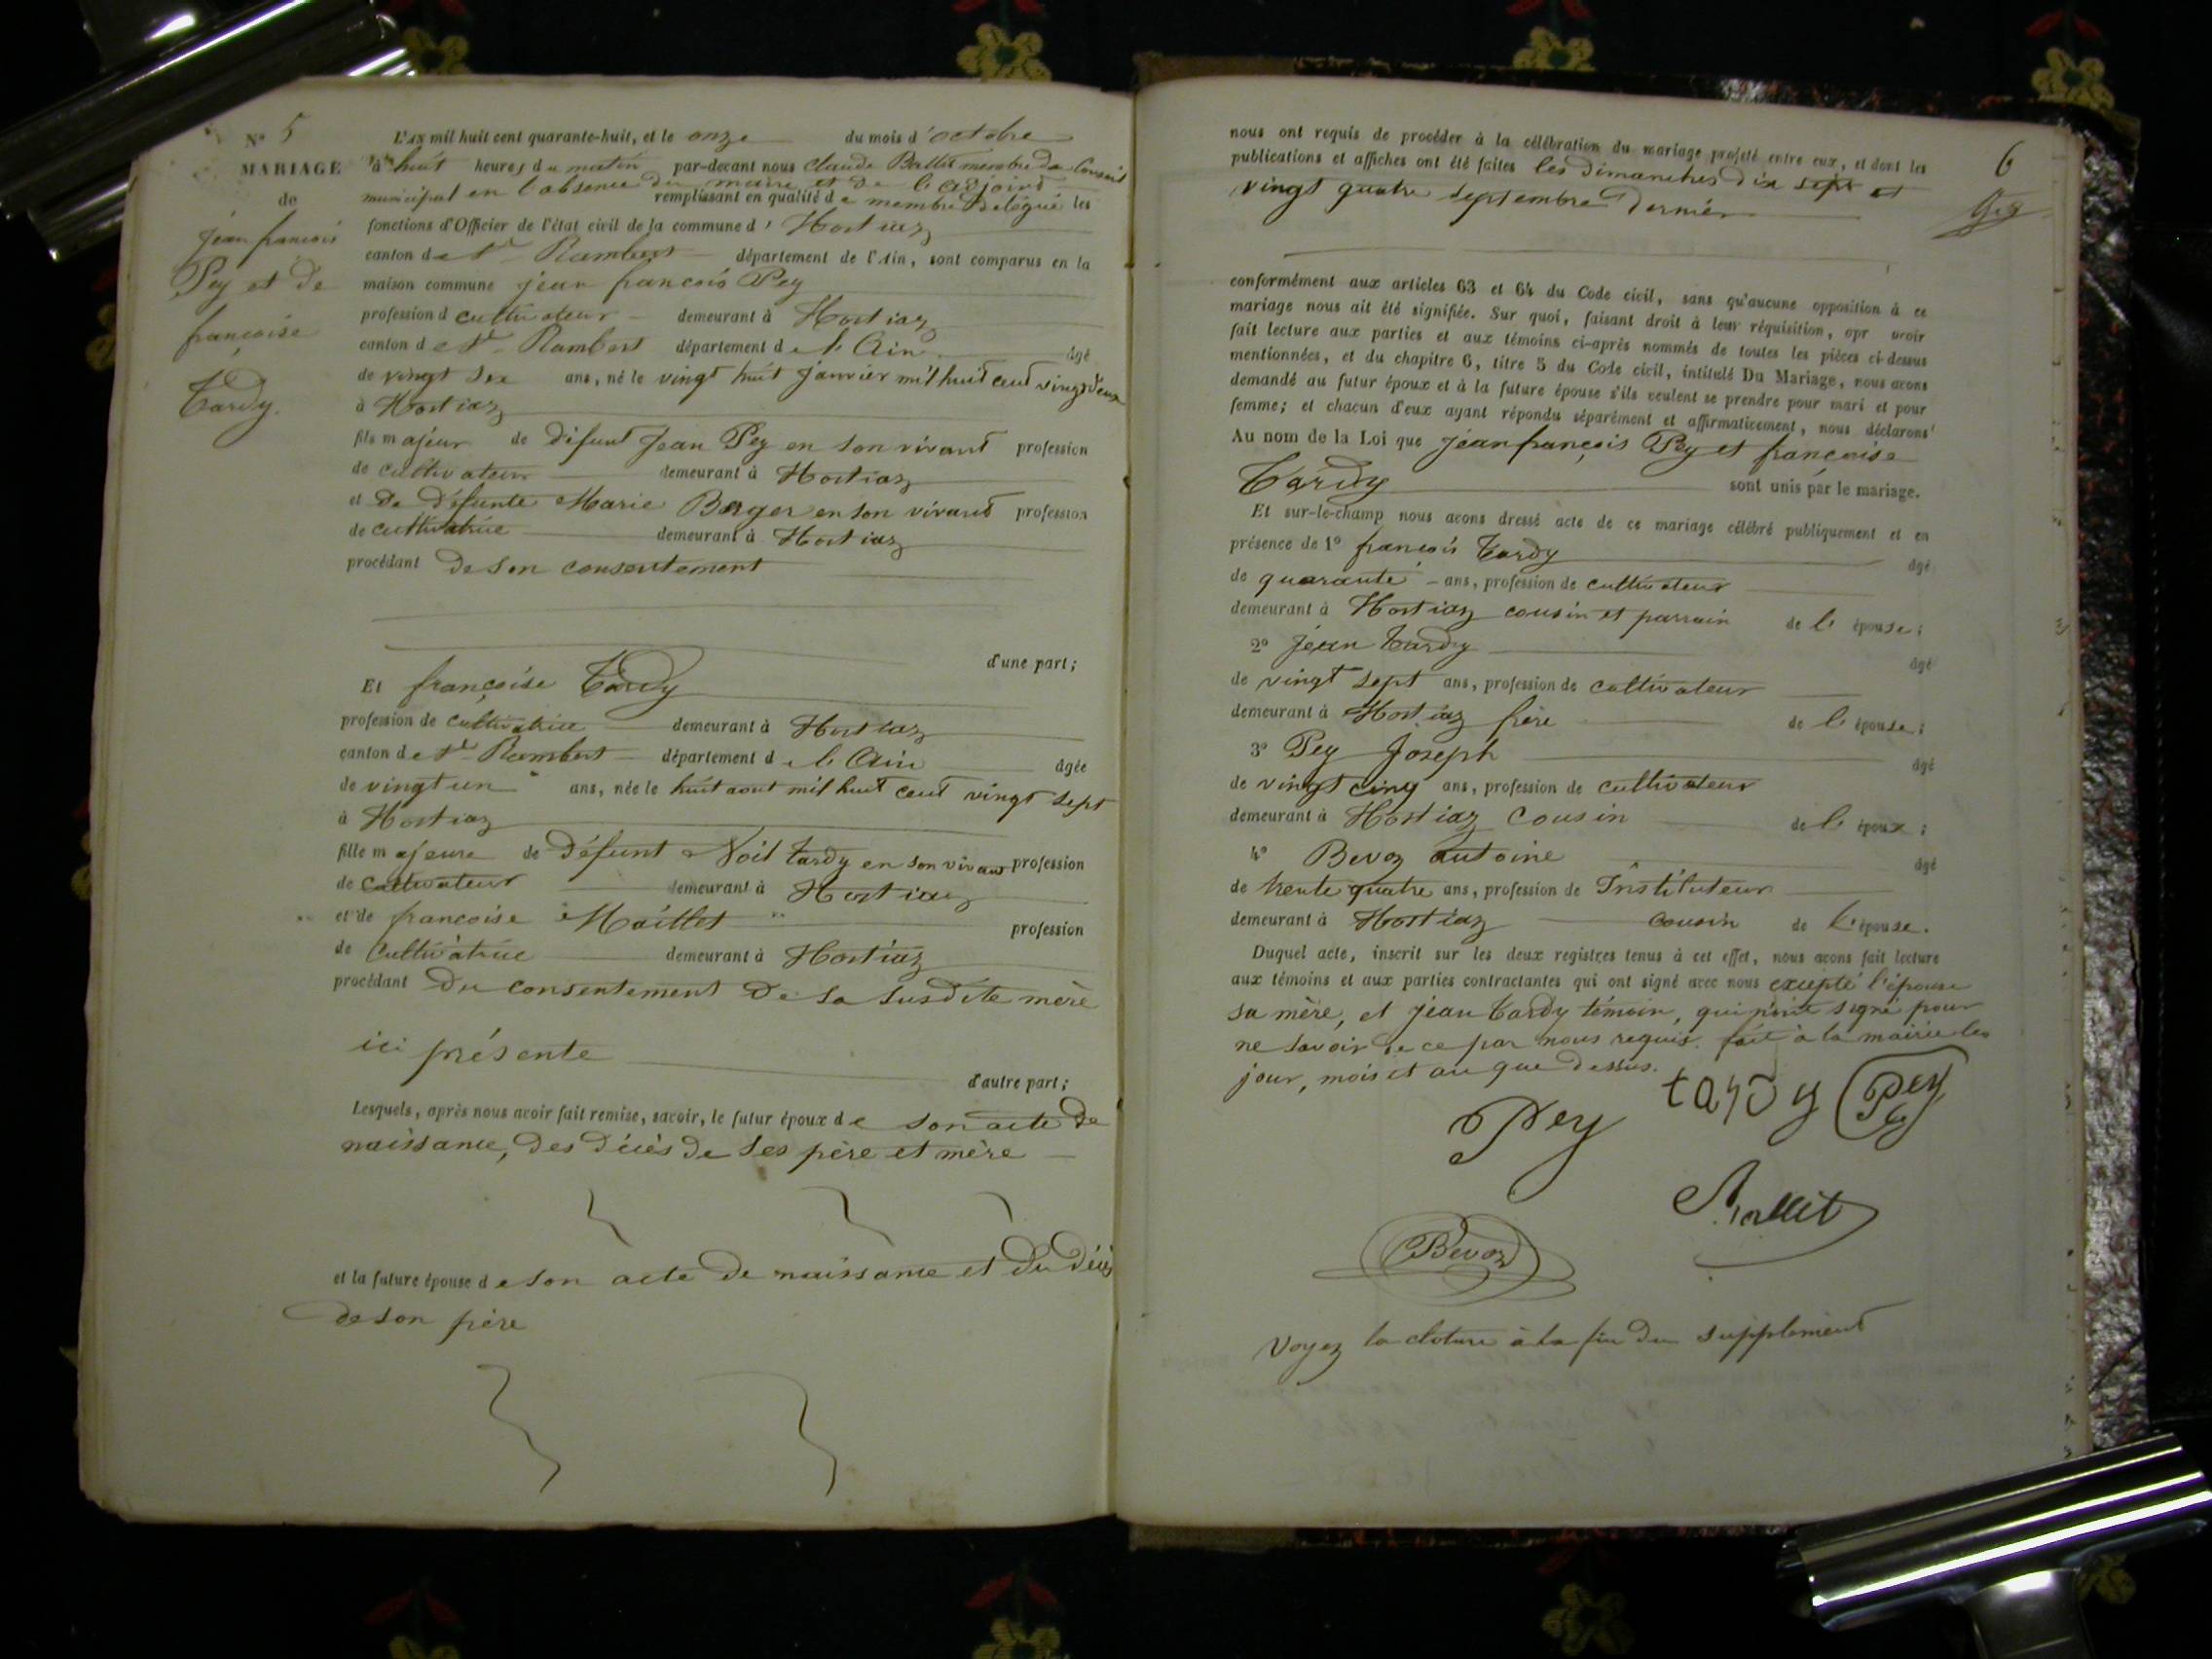 N° 5
MARIAGE
de
jean francois
Pey et de
françoise
Tardy.
L'AN mil huit cent quarante-huit, et le onze du mois d'octobre
à huit heures du matin par-devant nous Claude Ballit membre du Conseil
municipal en l'absence du maire et de l'adjoint
remplissant en qualité de membre délégué les
fonctions d'Officier de l'état civil de la commune d'Hostiaz
canton de St Rambert département de l'Ain, sont comparus en la
maison commune jean francois Pey
profession d cultivateur demeurant à Hostiaz
canton de St Rambert département de l'Ain âgé
de vingt six ans, né le vingt huit janvier mil huit cent vingt deux
à Hostiaz
fils majeur de défunt Jean Pey en son vivant profession
de cultivateur demeurant à Hostiaz
et de défunte Marie Berger en son vivant profession
de cultivatrice demeurant à Hostiaz
procédant de son consentement
d'une part;
Et françoise Tardy
profession de cultivatrice demeurant à Hostiaz
canton de St Rambert département de l'Ain âgée
de vingt un ans, née le huit aout mil huit cent vingt sept
à Hostiaz
fille majeure de défunt Noël tardy en son vivant profession
de cultivateur demeurant à Hostiaz
et de francoise Maillet profession
de Cultivatrice demeurant à Hostiaz
procédant du consentement de sa susdite mère
ici présente
d'autre part;
Lesquels, après nous avoir fait remise, savoir, le futur époux de son acte de
naissance, des décès de ses père et mère
et la future épouse de son acte de naissance et du décès
de son père
6
nous ont requis de procéder à la célébration du mariage projeté entre eux, et dont les
publications et affiches ont été faites les dimanches dix sept et
vingt quatre septembre dernier
conformément aux articles 63 et 64 du Code civil, sans qu'aucune opposition à ce
mariage nous ait été signifiée. Sur quoi, faisant droit à leur réquisition, apr avoir
fait lecture aux parties et aux témoins ci-après nommés de toutes les pièces ci-dessus
mentionnées, et du chapitre 6, titre 5 du Code civil, intitulé Du Mariage, nous avons
demandé au futur époux et à la future épouse s'ils veulent se prendre pour mari et pour
femme; et chacun d'eux ayant répondu séparément et affirmativement, nous déclarons
Au nom de la Loi que jean françois Pey et françoise
Tardy sont unis par le mariage.
Et sur-le-champ nous avons dressé acte de ce mariage célébré publiquement et en
présence de 1° francois Tardy âgé
de quarante ans, profession de cultivateur
demeurant à Hostiaz cousin et parrain de l'épouse;
2° Jean Tardy âgé
de vingt sept ans, profession de cultivateur
demeurant à Hostiaz frère de l'épouse;
3° Pey Joseph âgé
de vingt cinq ans, profession de cultivateur
demeurant à Hostiaz Cousin de l'époux;
4° Bevoz antoine âgé
de trente quatre ans, profession de Instituteur
demeurant à Hostiaz cousin de l'épouse.
Duquel acte, inscrit sur les deux registres tenus à cet effet, nous avons fait lecture
aux témoins et aux parties contractantes qui ont signé avec nous excepté l'épouse
sa mère, et jean Tardy témoin, qui n'ont signé pour
ne savoir de ce par nous requis. fait à la mairie les
jour, mois et an que dessus.
Pey tardy Pey
Ballit
Bevoz
Voyez la cloture à la fin du supplément